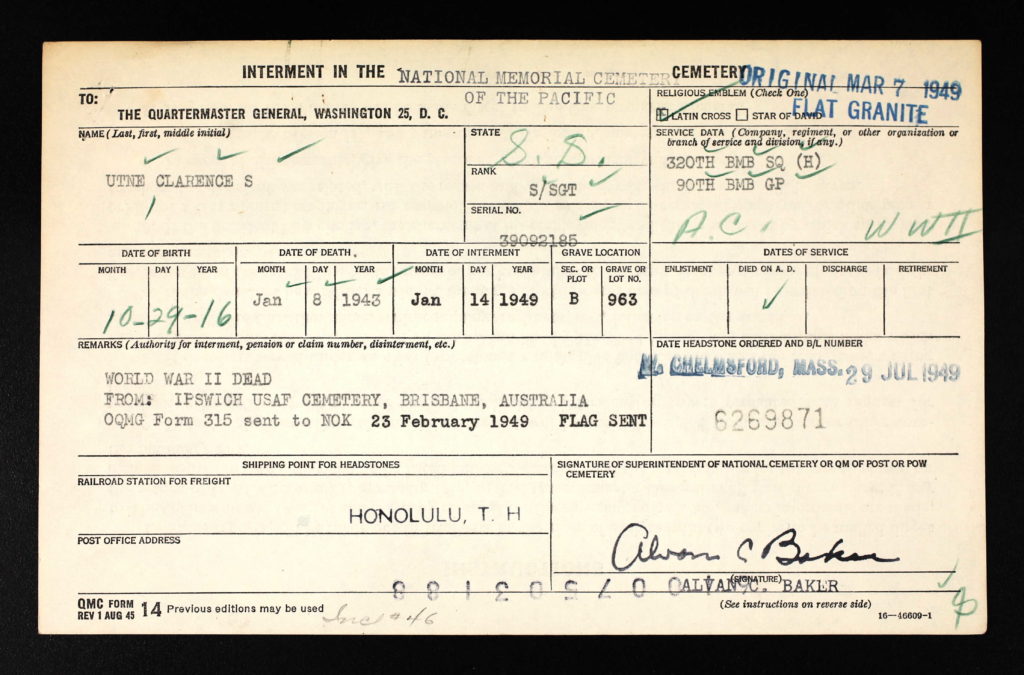 INTERMENT IN THE NATIONAL MEMORIAL CEMETERY CEMETERY
OF THE PACIFIC
ORIGINAL MAR 7 1949
FLAT GRANITE
TO:
THE QUARTERMASTER GENERAL, WASHINGTON 25, D. C.
RELIGIOUS EMBLEM (Check One)
LATIN CROSS STAR OF DAVID
NAME (Last, first, middle initial)
UTNE CLARENCE S
STATE
S. D.
RANK
S/SGT
SERIAL NO.
39092185
SERVICE DATA (Company, regiment, or other organization or
branch of service and division, if any.)
320TH BMB SQ (H)
90TH BMB GP
A.C. WW II
DATE OF BIRTH
MONTH DAY YEAR
10-29-16
DATE OF DEATH
MONTH DAY YEAR
Jan 8 1943
DATE OF INTERMENT
MONTH DAY YEAR
Jan 14 1949
GRAVE LOCATION
SEC. OR PLOT GRAVE OR LOT NO.
B 963
DATES OF SERVICE
ENLISTMENT DIED ON A. D. DISCHARGE RETIREMENT
REMARKS (Authority for interment, pension or claim number, disinterment, etc.)
WORLD WAR II DEAD
FROM: IPSWICH USAF CEMETERY, BRISBANE, AUSTRALIA
OQMG Form 315 sent to NOK 23 February 1949 FLAG SENT
DATE HEADSTONE ORDERED AND B/L NUMBER
W. CHELMSFORD, MASS. 29 JUL 1949
6269871
SHIPPING POINT FOR HEADSTONES
RAILROAD STATION FOR FREIGHT
HONOLULU, T. H
POST OFFICE ADDRESS
SIGNATURE OF SUPERINTENDENT OF NATIONAL CEMETERY OR QM OF POST OR POW
CEMETERY
Alvan C Baker
(SIGNATURE)
ALVAN C. BAKER
(See instructions on reverse side)
QMC FORM
REV 1 AUG 45 14 Previous editions may be used
16—46609-1